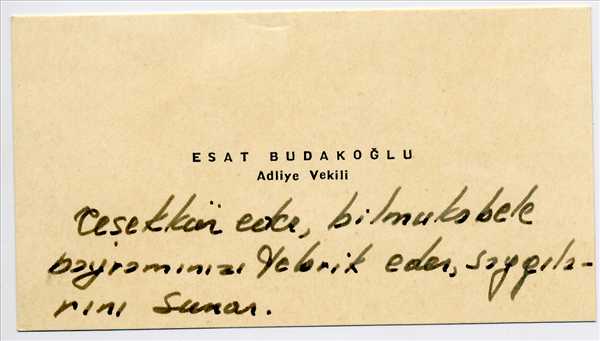 ESAT BUDAKOĞLU
Adliye Vekili
Teşekkür eder, bilmukabele
bayramınızı tebrik eder, saygıla-
rını sunar.